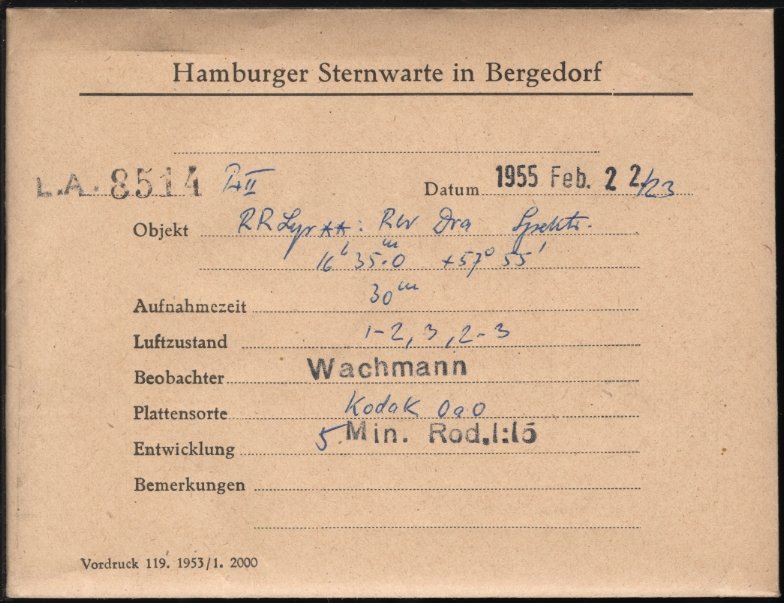 Hamburger Sternwarte in Bergedorf
L.A. 8514 Pr II
Datum 1955 Feb. 22/23
Objekt RR Lyr **: RW Dra Spektr.
16h 35m.0 +57° 55'
Aufnahmezeit 30m
Luftzustand 1-2, 3, 2-3
Beobachter Wachmann
Plattensorte Kodak 0a0
Entwicklung 5 Min. Rod.1:15
Bemerkungen
Vordruck 119. 1953/1. 2000